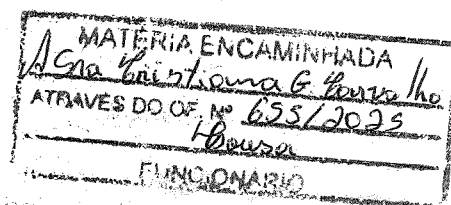 MATÉRIA ENCAMINHADA
A Sra Cristiana G. Carvalho
ATRAVÉS DO OF. Nº 655/2025
FUNCIONARIO